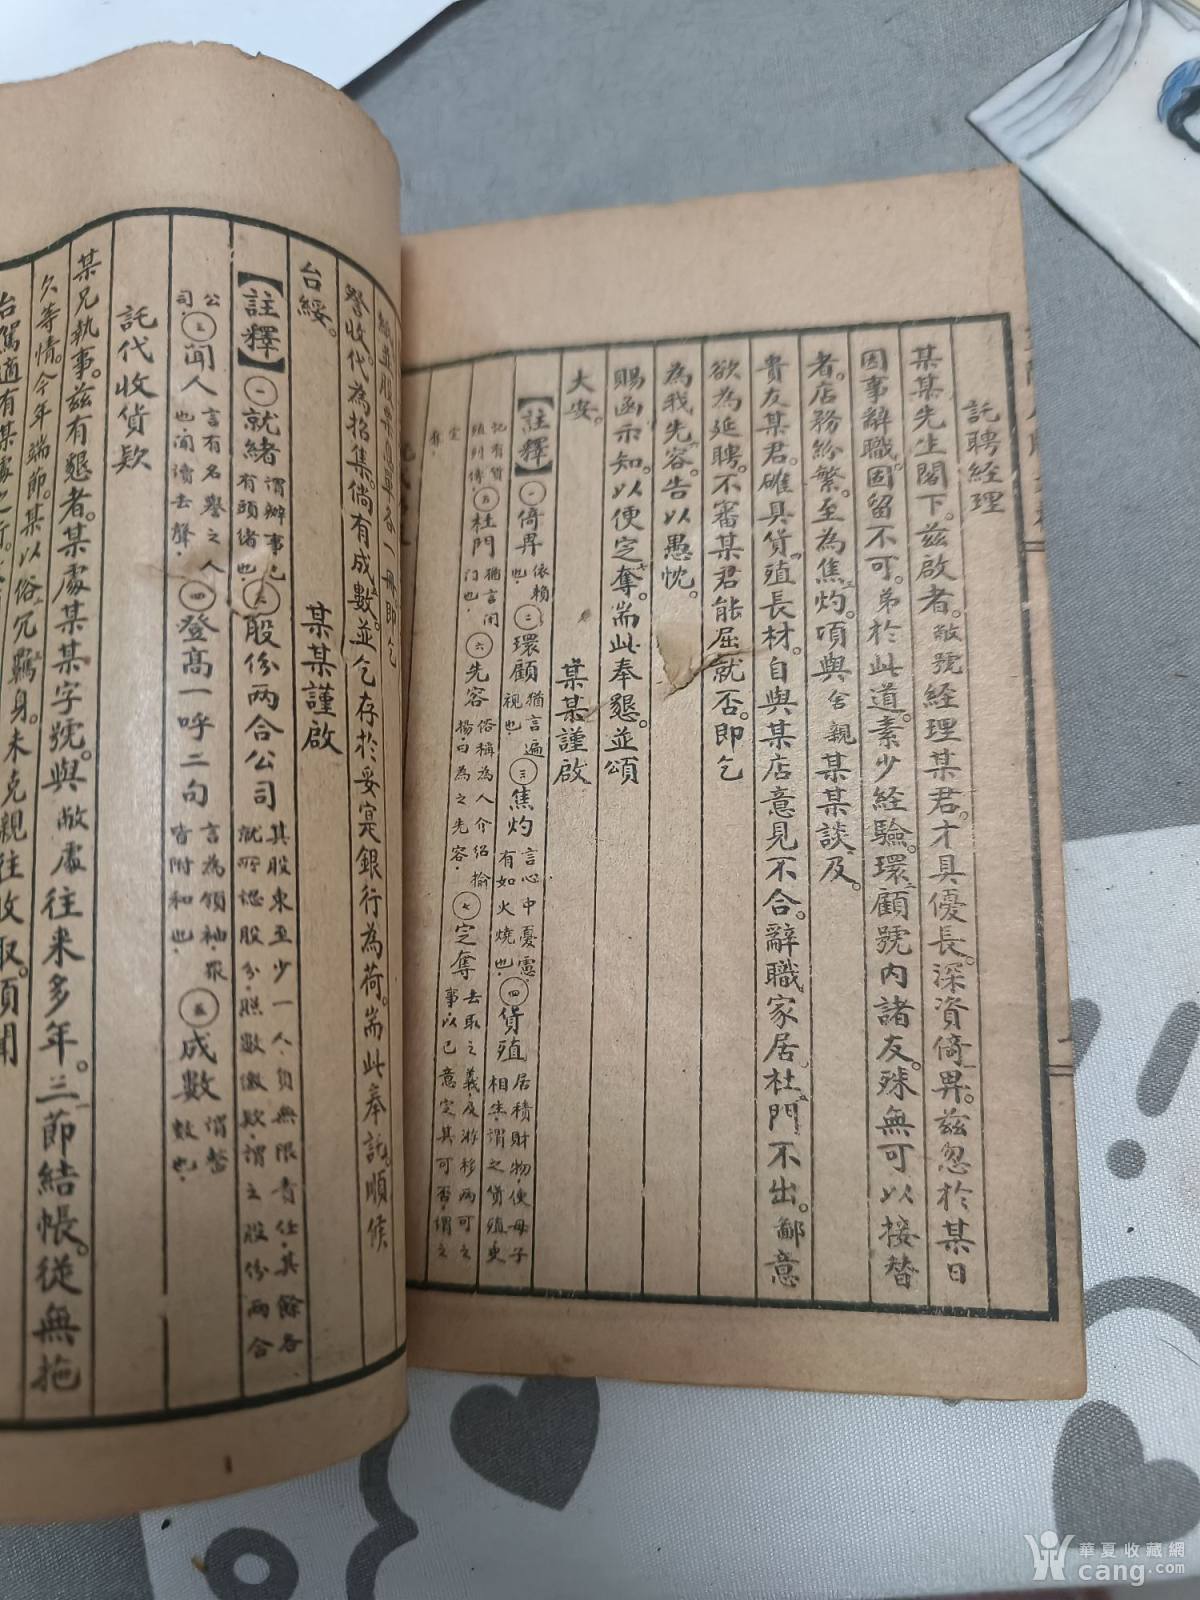 託聘經理
某某先生閣下。茲啟者。敝號經理某君。才具優長。深資倚畀。茲忽於某日
因事辭職。固留不可。弟於此道。素少經驗。環顧號內諸友。殊無可以接替
者。店務紛繁。至為焦灼。項與舍親某某談及。
貴友某君。確具貨殖長材。自與某店意見不合。辭職家居。杜門不出。鄙意
欲為延聘。不審某君能屈就否。即乞
為我先容。告以愚忱。
賜函示知。以便定奪。耑此奉懇。並頌
大安。
某某謹啟
【註釋】㊀倚畀依賴也。㊁環顧猶言遍視也。㊂焦灼言心中憂慮有如火燒也。㊃貨殖居積財物。使母子相生。謂之貨殖。史
記有貨殖列傳。㊄杜門猶言閉門也。㊅先容俗稱為人介紹揄揚曰為之先容。㊆定奪去取之義。反游移兩可之事。以己意定其可否。謂之
定奪。
各一冊即乞
詧收。代為招集。倘有成數。並乞存於妥寔銀行為荷。耑此奉託。順候
台綏。
某某謹啟
【註釋】㊀就緒謂辦事已有頭緒也。㊁股份兩合公司其股東至少一人。負無限責任。其餘各就所認股份。照數繳款。謂之股份兩合
公司。㊂聞人言有名譽之人也。聞讀去聲。㊃登高一呼二句言為領袖。眾皆附和也。㊄成數謂整數也。
託代收貨欵
某兄執事。茲有懇者。某處某某字號。與敝處往來多年。三節結帳。從無拖
欠等情。今年端節。某以俗冗羈身。未克親往收取。頃聞
台駕適有某處之行。
華夏收藏網
cang.com